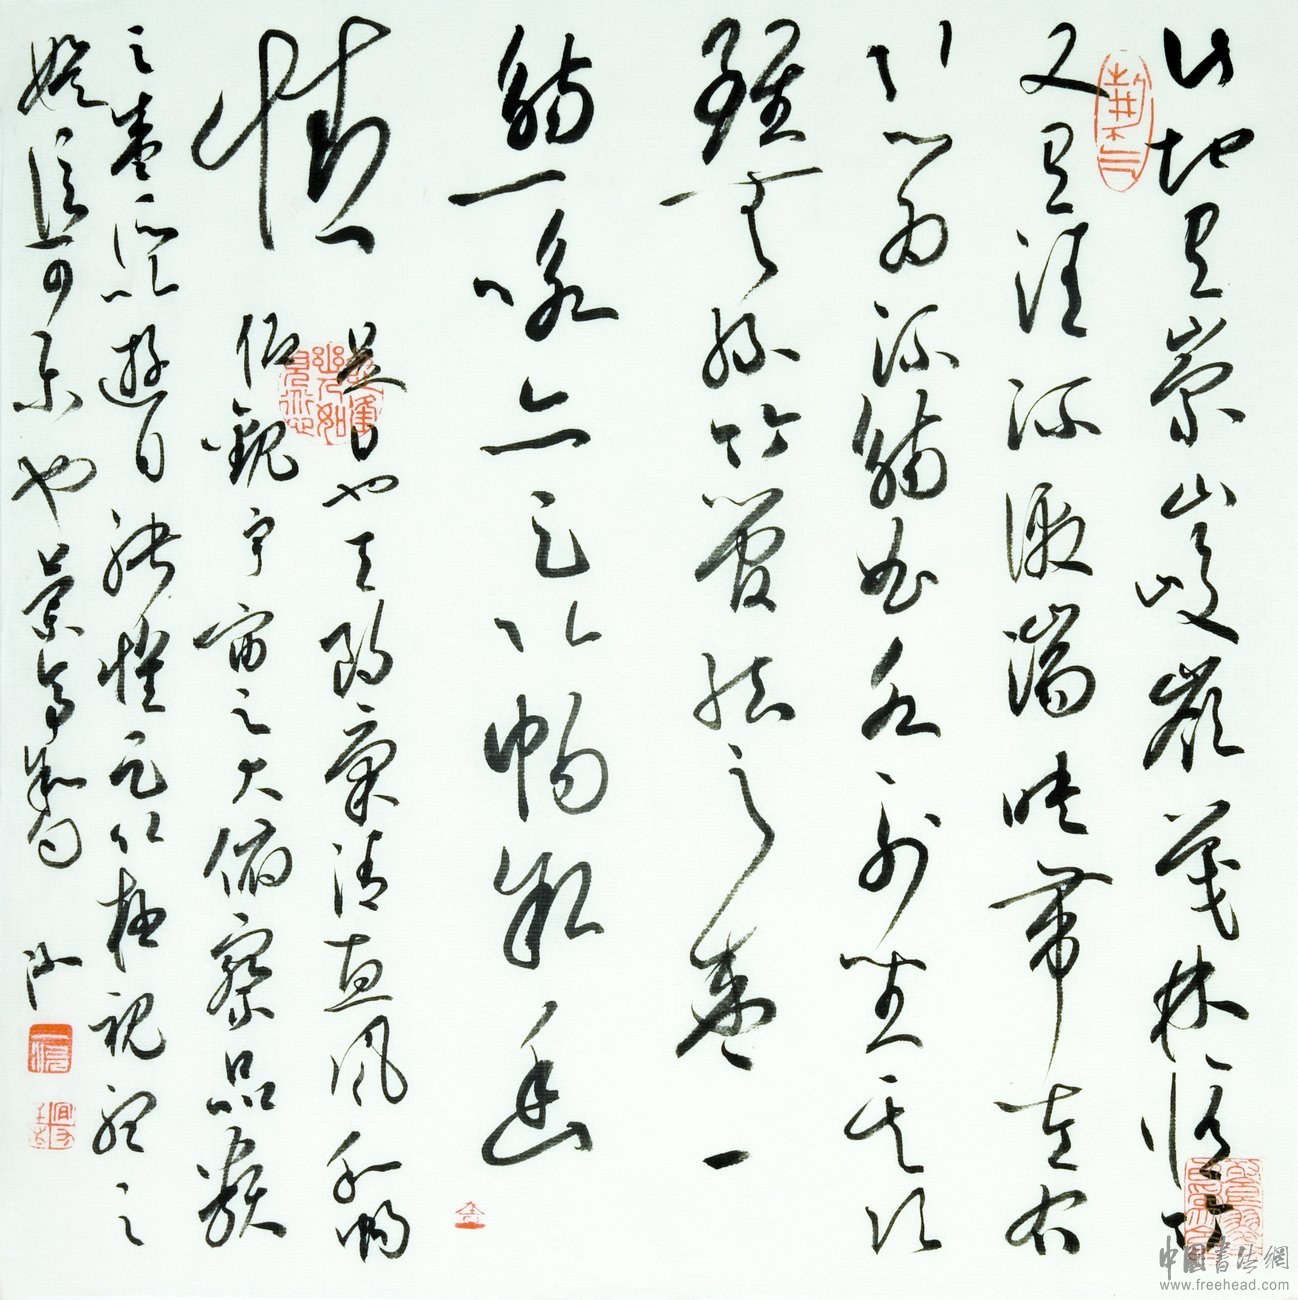 此地有崇山峻嶺茂林脩竹
又有清流激湍映帶左右
引以為流觴曲水列坐其次
雖無絲竹管絃之盛一
觴一詠亦足以暢敘幽
情
是日也天朗氣清惠風和暢
仰觀宇宙之大俯察品類
之盛所以遊目騁懷足以極視聽之
娛信可樂也
中國書法網
www.freehead.com